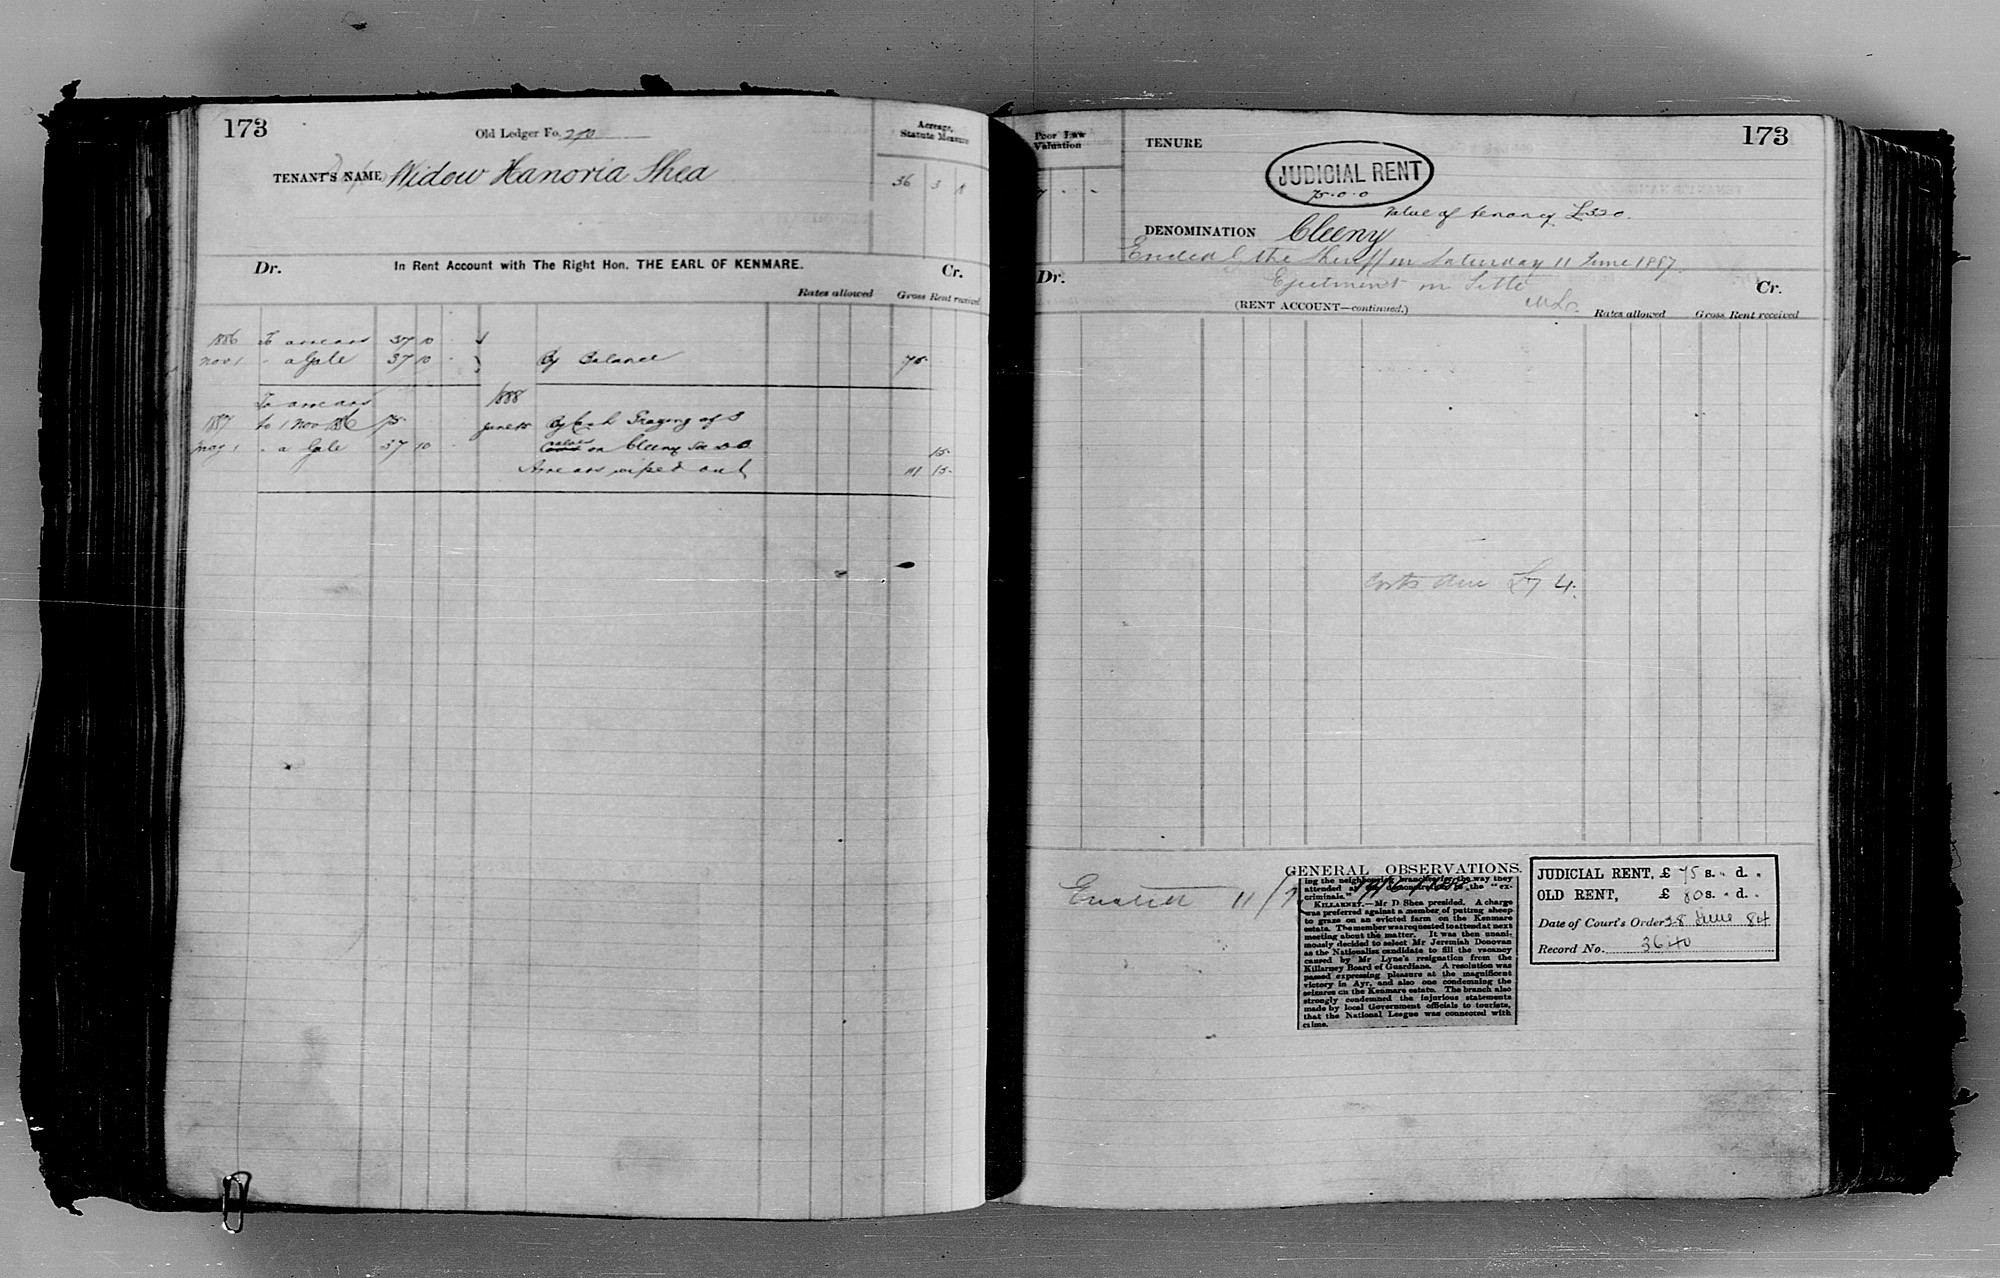 173
Old Ledger Fo. 270
Acreage, Statute Measure
TENANT'S NAME, Widow Hanoria Shea
36 3
Dr. In Rent Account with The Right Hon. THE EARL OF KENMARE. Cr.
Rates allowed Gross Rent received
1886 To arrears 37 10
Nov 1 " a Gale 37 10 By Balance 75
To arrears 1888
1887 to 1 Nov 1886 75 June By Cash Grazing of
May 1 " a Gale 37 10 on Cleeny 15
Arrears wiped out 111 15
Poor Law Valuation
TENURE
173
JUDICIAL RENT
75.0.0
Value of tenancy £320.
DENOMINATION Cleeny
the Sheriff on Saturday 11 June 1887
Ejectment on Title
Dr. (RENT ACCOUNT—continued.) Cr.
Rates allowed Gross Rent received
Costs due £7 4.
GENERAL OBSERVATIONS.
ing the neighbouring branches for the way they
attended at the "ex-
criminals."
KILLARNEY.—Mr D Shea presided. A charge
was preferred against a member of putting sheep
to graze on an evicted farm on the Kenmare
estate. The member was requested to attend at next
meeting about the matter. It was then unani-
mously decided to select Mr Jeremiah Donovan
as the Nationalist candidate to fill the vacancy
caused by Mr Lyne's resignation from the
Killarney Board of Guardians. A resolution was
passed expressing pleasure at the magnificent
victory in Ayr, and also one condemning the
seizures on the Kenmare estate. The branch also
strongly condemned the injurious statements
made by local Government officials to tourists,
that the National League was connected with
crime.
JUDICIAL RENT, £ 75 s. " d. "
OLD RENT, £ 80 s. " d. "
Date of Court's Order 28 June 84
Record No. 3640